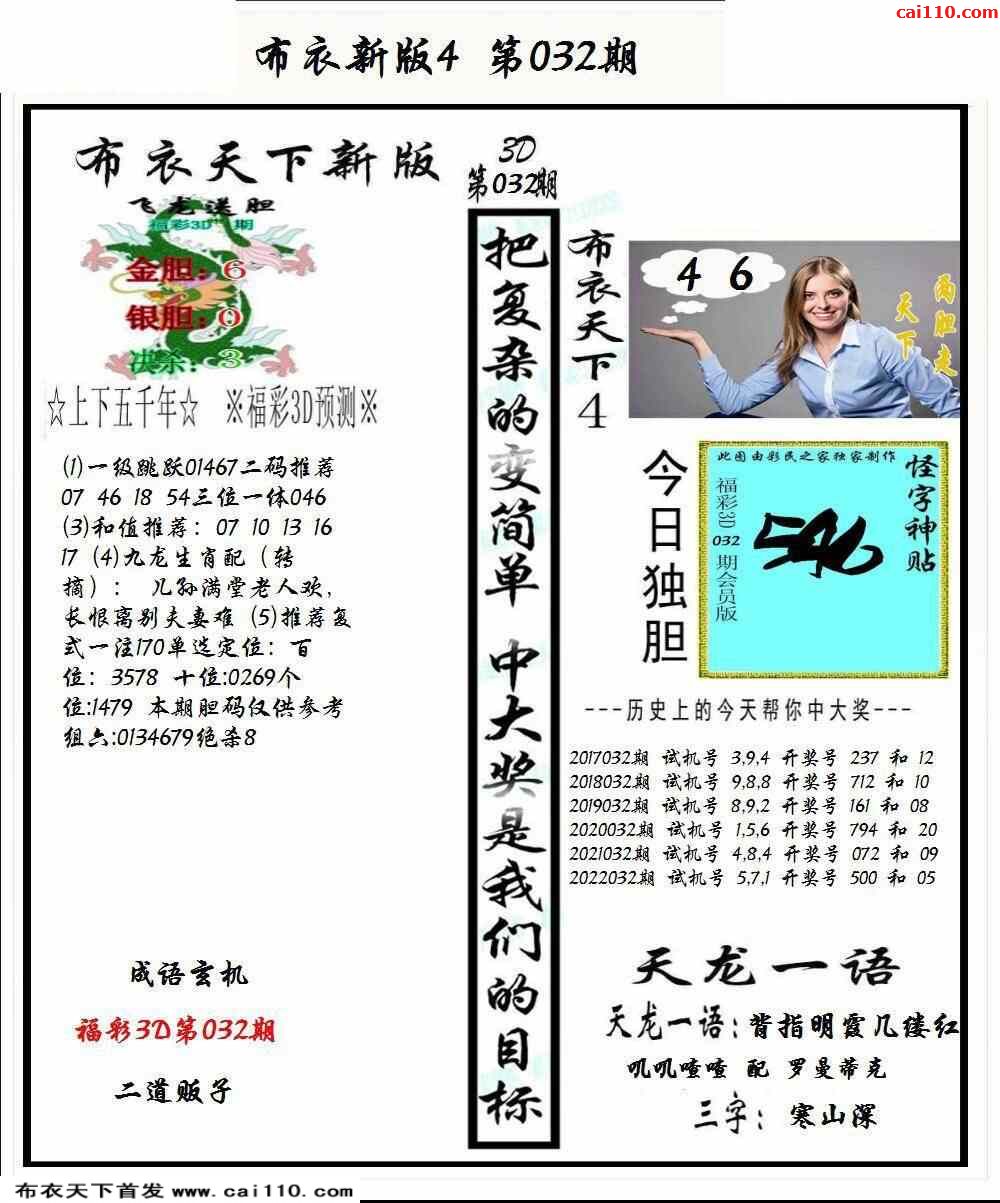 cai110.com
布衣新版4 第032期
布衣天下新版
飞龙送胆
福彩3D 期
金胆：6
银胆：0
决杀：3
☆上下五千年☆ ※福彩3D预测※
(1)一级跳跃01467二码推荐
07 46 18 54三位一体046
(3)和值推荐：07 10 13 16
17 (4)九龙生肖配（转
摘）： 儿孙满堂老人欢,
长恨离别夫妻难 (5)推荐复
式一注170单选定位：百
位：3578 十位:0269个
位:1479 本期胆码仅供参考
组六:0134679绝杀8
成语玄机
福彩3D第032期
二道贩子
3D
第032期
把复杂的变简单 中大奖是我们的目标
布衣天下4
4 6
两胆走
天下
今日独胆
此图由彩民之家独家制作
怪字神贴
福彩3D 032 期会员版
546
---历史上的今天帮你中大奖---
2017032期 试机号 3,9,4 开奖号 237 和 12
2018032期 试机号 9,8,8 开奖号 712 和 10
2019032期 试机号 8,9,2 开奖号 161 和 08
2020032期 试机号 1,5,6 开奖号 794 和 20
2021032期 试机号 4,8,4 开奖号 072 和 09
2022032期 试机号 5,7,1 开奖号 500 和 05
天龙一语
天龙一语：背指明霞几缕红
叽叽喳喳 配 罗曼蒂克
三字： 寒山深
布衣天下首发 www.cai110.com